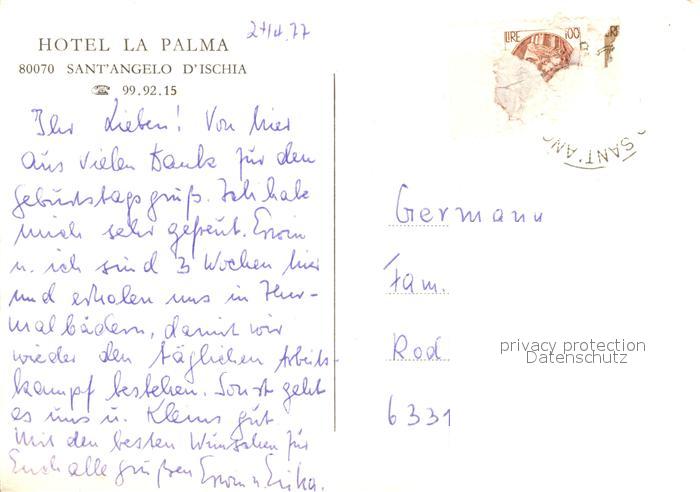 HOTEL LA PALMA
80070 SANT'ANGELO D'ISCHIA
☎ 99.92.15
Ihr Lieben! Von hier
aus vielen Dank für den
Geburtstagsgruß. Ich hab
mich sehr gefreut. Erwin
u. ich sind 3 Wochen hier
und erholen uns in Ther-
malbädern, damit wir
wieder den täglichen Arbeits-
kampf bestehen. Sonst geht
es uns u. Kleins gut
Mit den besten Wünschen für
Euch alle grüßen Erwin u. Erika.
LIRE 100
SANT'ANG
Germann
Fam.
Rod
6331
privacy protection
Datenschutz